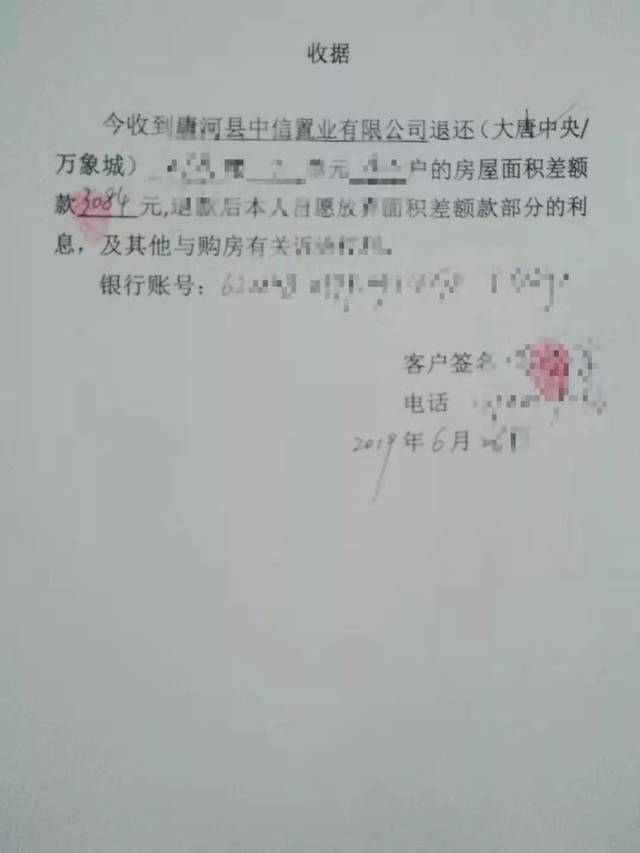 收据
今收到唐河县中信置业有限公司退还(大唐中央/
万象城) 单元 户的房屋面积差额
款3084元,退款后本人自愿放弃面积差额款部分的利
息，及其他与购房有关诉
银行账号：62
客户签名
电话
2019年6月